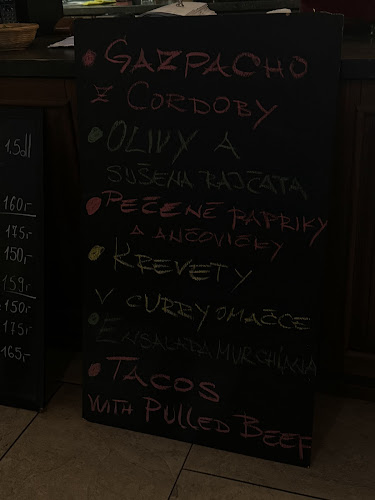 GAZPACHO
Z CORDOBY
OLIVY A
SUŠENA RAJČATA
PEČENÉ PAPRIKY
A ANČOVIČKY
KREVETY
V CURRY OMAČCE
ENSALADA MURCHIANA
TACOS
WITH PULLED BEEF
1.5dl
160,-
175,-
150,-
159,-
150,-
175,-
165,-